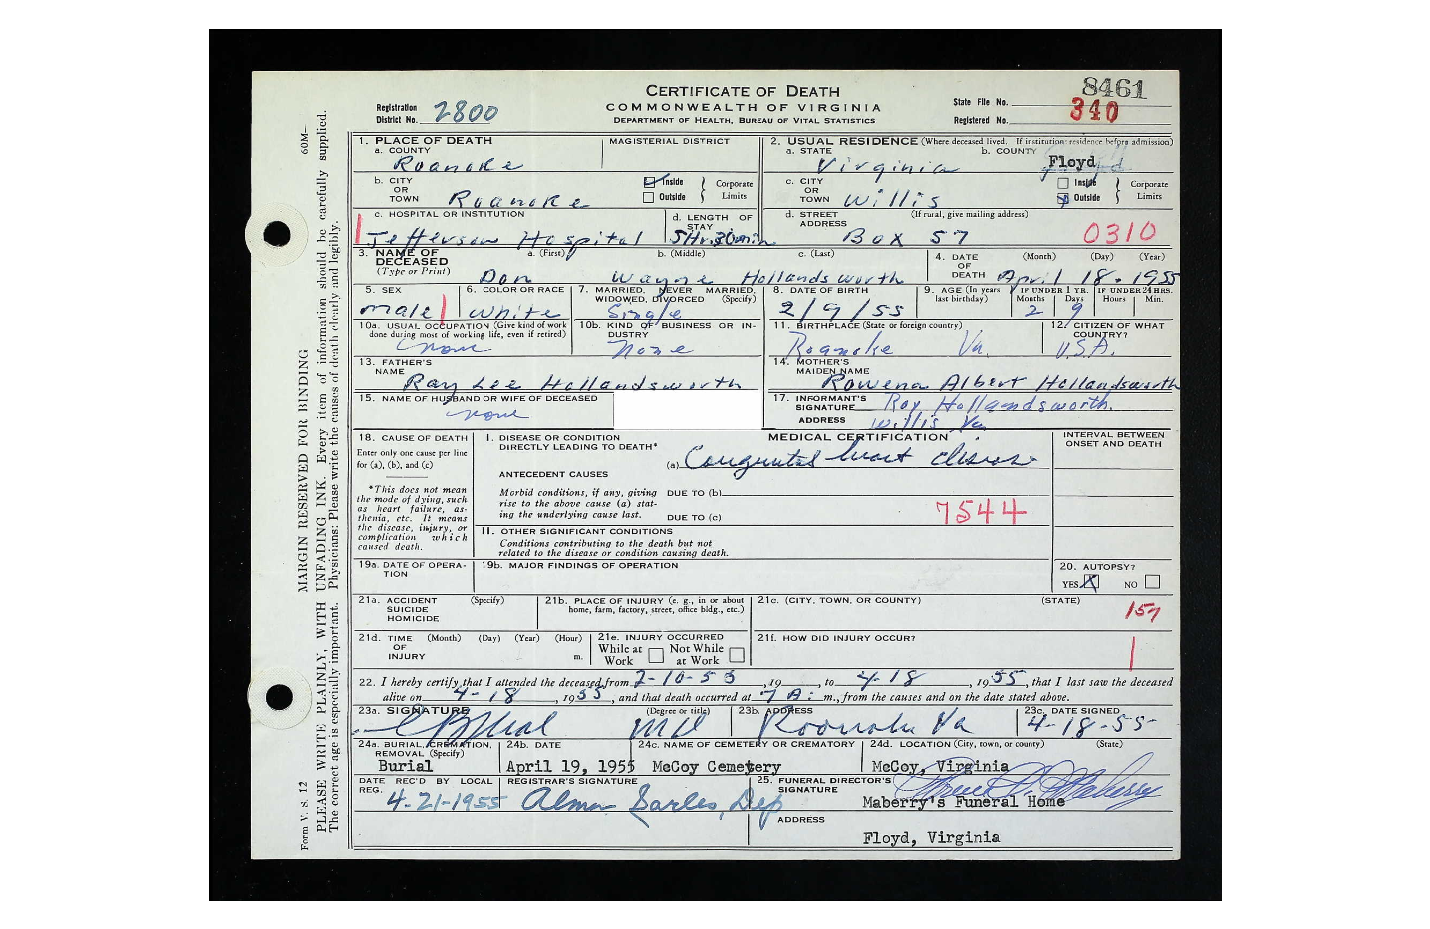 8461
CERTIFICATE OF DEATH
COMMONWEALTH OF VIRGINIA
DEPARTMENT OF HEALTH, BUREAU OF VITAL STATISTICS
Registration District No. 2800
State File No.
Registered No. 340
1. PLACE OF DEATH
a. COUNTY Roanoke
MAGISTERIAL DISTRICT
2. USUAL RESIDENCE (Where deceased lived. If institution: residence before admission)
a. STATE Virginia b. COUNTY Floyd
b. CITY OR TOWN Roanoke Inside Outside Corporate Limits
c. CITY OR TOWN Willis Inside Outside Corporate Limits
c. HOSPITAL OR INSTITUTION Jefferson Hospital
d. LENGTH OF STAY 5Hr.30min
d. STREET ADDRESS (If rural, give mailing address) Box 57
0310
3. NAME OF DECEASED (Type or Print) a. (First) b. (Middle) c. (Last)
Don Wayne Hollandsworth
4. DATE OF DEATH (Month) (Day) (Year) April 18-1955
5. SEX male
6. COLOR OR RACE White
7. MARRIED, NEVER MARRIED, WIDOWED, DIVORCED (Specify) Single
8. DATE OF BIRTH 2/9/55
9. AGE (In years last birthday) IF UNDER 1 YR. Months 2 Days 9 IF UNDER 24 HRS. Hours Min.
10a. USUAL OCCUPATION (Give kind of work done during most of working life, even if retired) none
10b. KIND OF BUSINESS OR INDUSTRY None
11. BIRTHPLACE (State or foreign country) Roanoke Va.
12. CITIZEN OF WHAT COUNTRY? U.S.A.
13. FATHER'S NAME Ray Lee Hollandsworth
14. MOTHER'S MAIDEN NAME Rowena Albert Hollandsworth
15. NAME OF HUSBAND OR WIFE OF DECEASED none
17. INFORMANT'S SIGNATURE Roy Hollandsworth.
ADDRESS Willis Va
18. CAUSE OF DEATH
Enter only one cause per line for (a), (b), and (c)
*This does not mean the mode of dying, such as heart failure, asthenia, etc. It means the disease, injury, or complication which caused death.
MEDICAL CERTIFICATION
INTERVAL BETWEEN ONSET AND DEATH
I. DISEASE OR CONDITION DIRECTLY LEADING TO DEATH* (a) Congenital heart disease
ANTECEDENT CAUSES
Morbid conditions, if any, giving rise to the above cause (a) stating the underlying cause last.
DUE TO (b)
DUE TO (c)
7544
II. OTHER SIGNIFICANT CONDITIONS
Conditions contributing to the death but not related to the disease or condition causing death.
19a. DATE OF OPERATION
19b. MAJOR FINDINGS OF OPERATION
20. AUTOPSY? YES NO
21a. ACCIDENT SUICIDE HOMICIDE (Specify)
21b. PLACE OF INJURY (e. g., in or about home, farm, factory, street, office bldg., etc.)
21c. (CITY, TOWN, OR COUNTY) (STATE)
157
21d. TIME OF INJURY (Month) (Day) (Year) (Hour) m.
21e. INJURY OCCURRED While at Work Not While at Work
21f. HOW DID INJURY OCCUR?
22. I hereby certify that I attended the deceased from 2-10-55, 19 , to 4-18, 1955, that I last saw the deceased
alive on 4-18, 1955, and that death occurred at 7 A. m., from the causes and on the date stated above.
23a. SIGNATURE (Degree or title) MD
23b. ADDRESS Roanoke Va
23c. DATE SIGNED 4-18-55
24a. BURIAL, CREMATION, REMOVAL (Specify) Burial
24b. DATE April 19, 1955
24c. NAME OF CEMETERY OR CREMATORY McCoy Cemetery
24d. LOCATION (City, town, or county) (State) McCoy, Virginia
DATE REC'D BY LOCAL REG. 4-21-1955
REGISTRAR'S SIGNATURE Alma Sarles, Dep
25. FUNERAL DIRECTOR'S SIGNATURE
Maberry's Funeral Home
ADDRESS
Floyd, Virginia
Form V. S. 12
60M—
MARGIN RESERVED FOR BINDING
PLEASE WRITE PLAINLY, WITH UNFADING INK. Every item of information should be carefully supplied.
The correct age is especially important. Physicians: Please write the causes of death clearly and legibly.